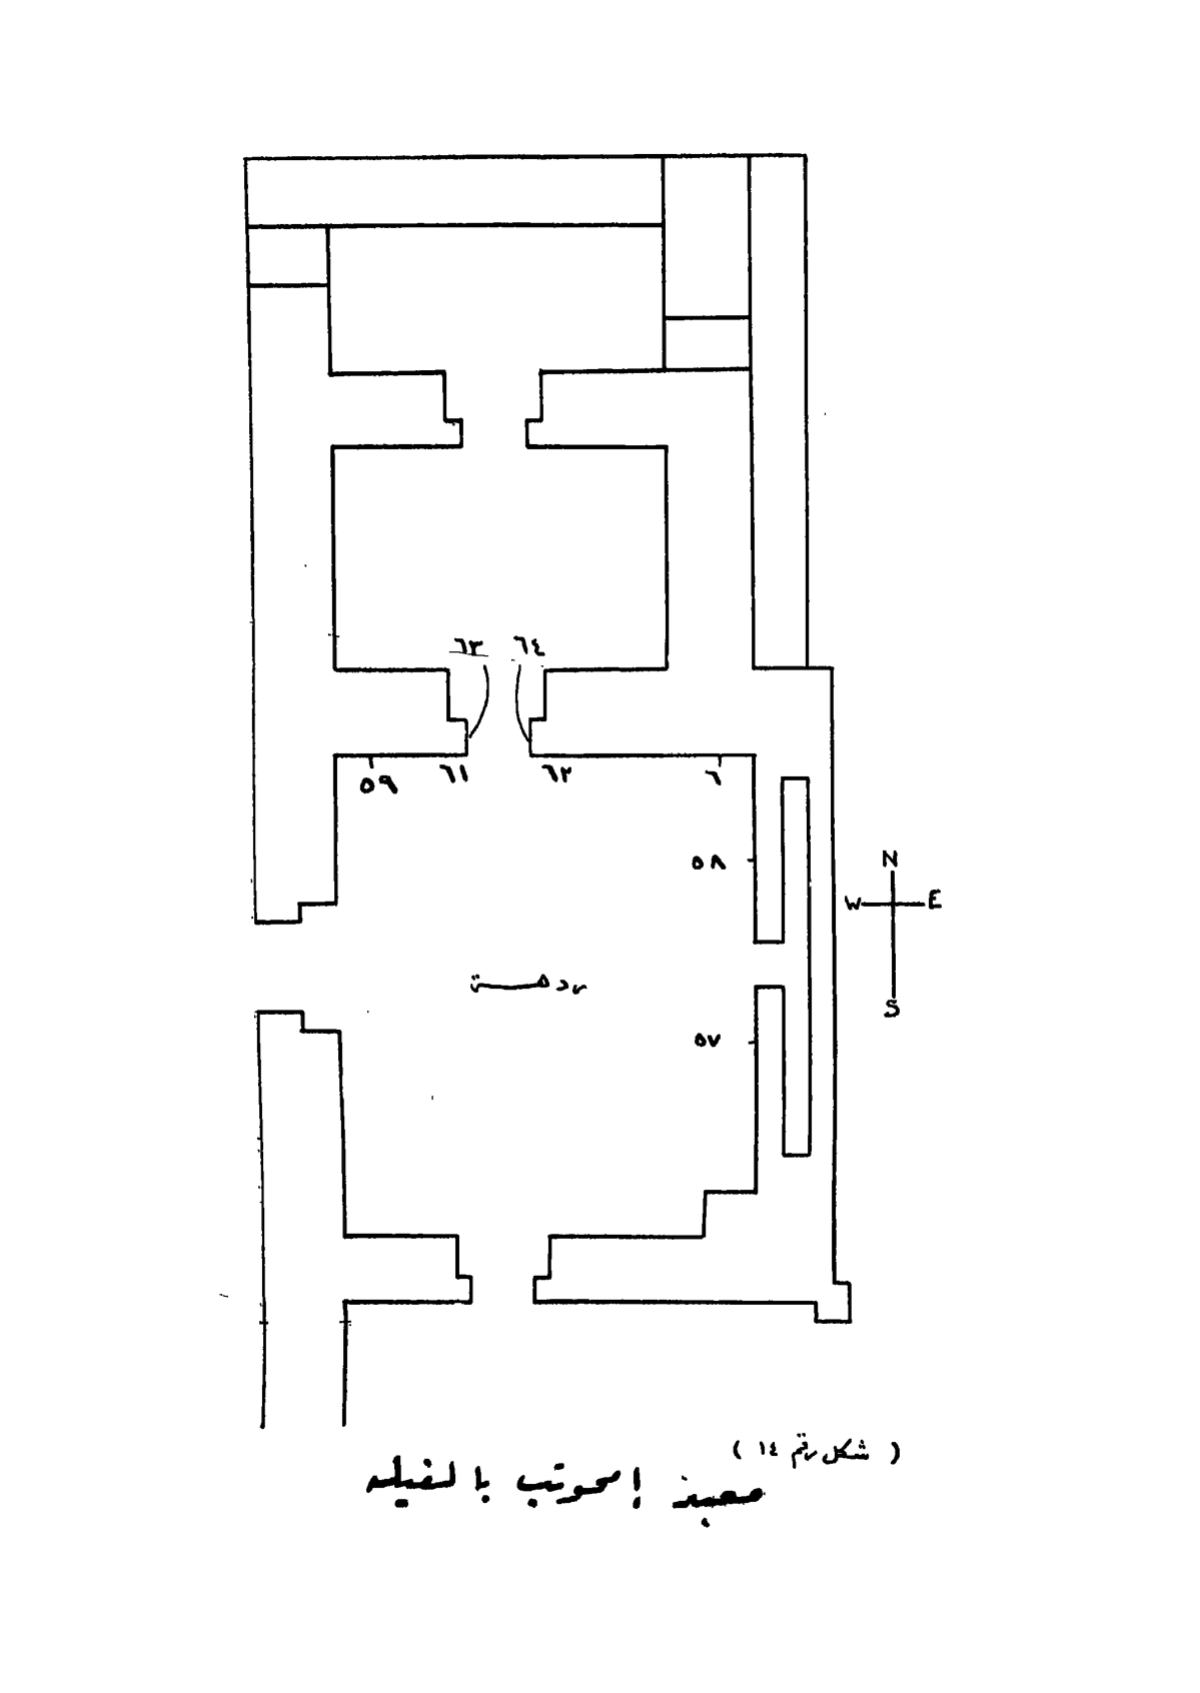 ٦٣ ٦٤
٥٩ ٦١ ٦٢ ٦
٥٨
N
W E
S
ردهة
٥٧
( شكل رقم ١٤ )
معبد إمحوتب بالفيله